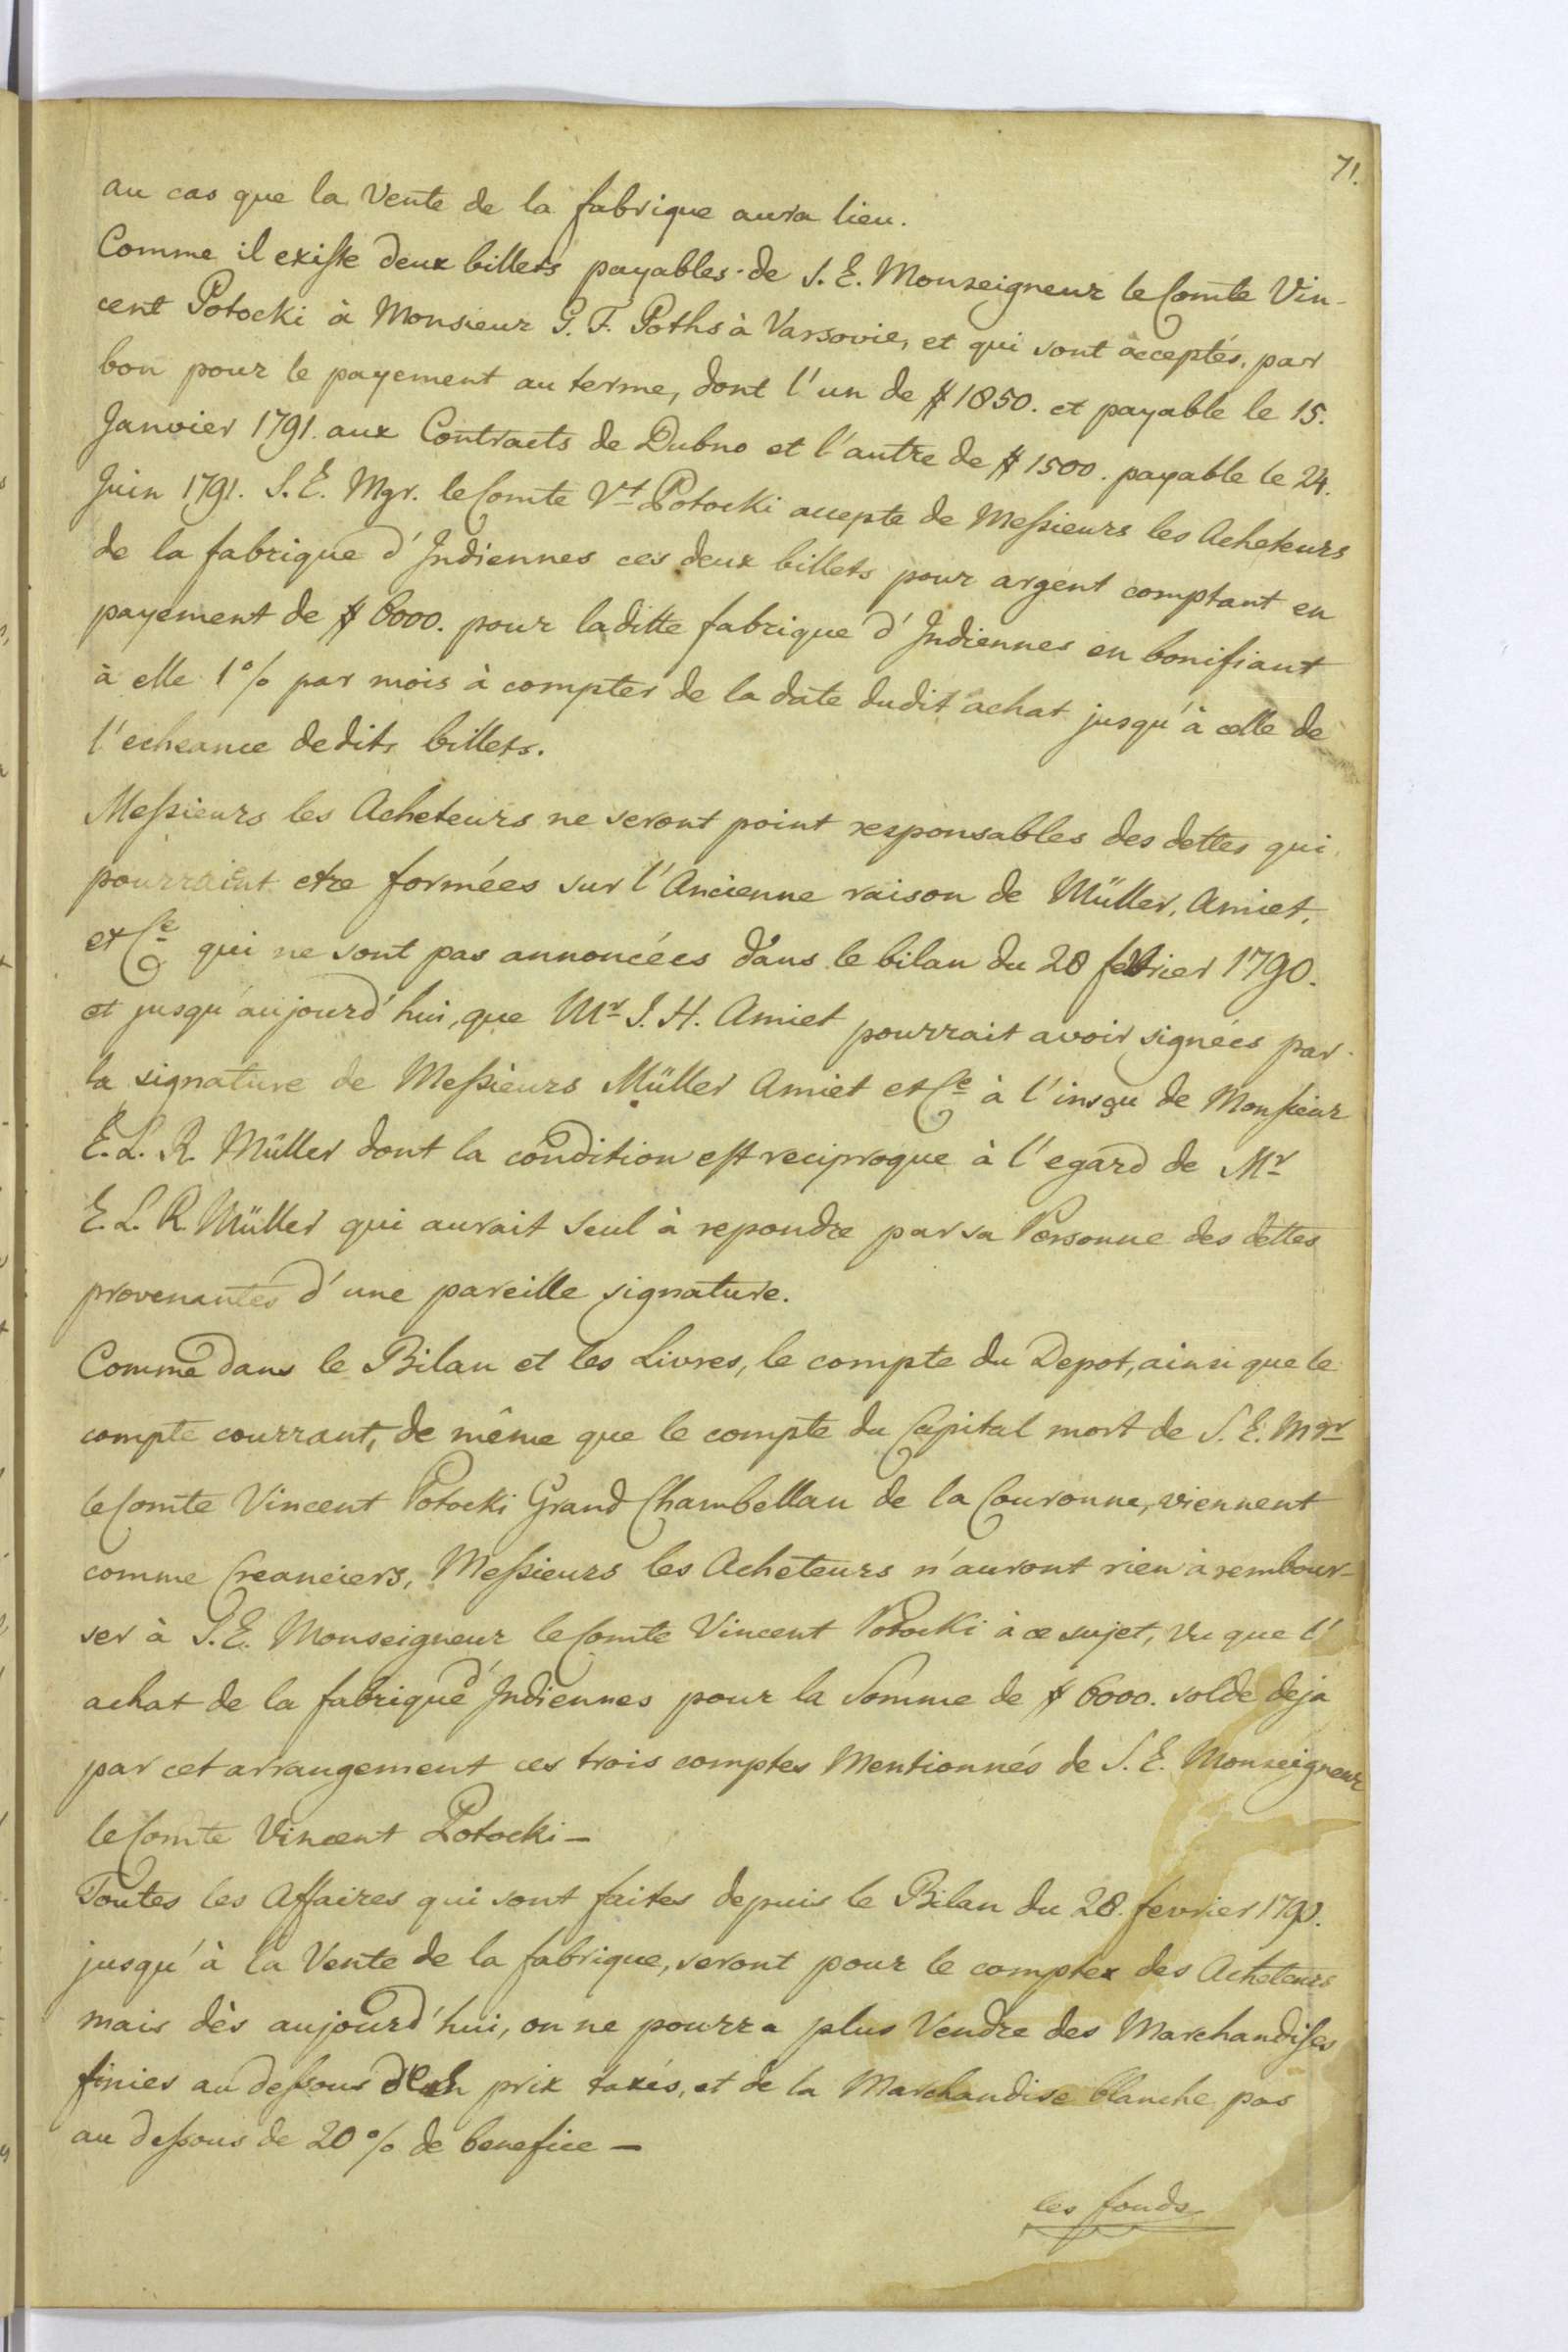 71.
au cas que la Vente de la fabrique aura lieu.
Comme il existe deux billets payables de S. E. Monseigneur le Comte Vin-
cent Potocki à Monsieur G. F. Poths à Varsovie, et qui sont acceptés, par
bon pour le payement au terme, dont l'un de # 1850. et payable le 15.
Janvier 1791. aux Contracts de Dubno et l'autre de # 1500. payable le 24.
Juin 1791. S. E. Mgr. le Comte Vt Potocki accepte de Messieurs les Acheteurs
de la fabrique d'Indiennes ces deux billets pour argent comptant en
payement de # 6000. pour laditte fabrique d'Indiennes en bonifiant
à elle 1 % par mois à compter de la date dudit achat jusqu'à celle de
l'echeance dedits billets.
Messieurs les Acheteurs ne seront point responsables des dettes qui
pourraint etre formées sur l'Ancienne raison de Müller, Amiet,
et Ce qui ne sont pas annoncées dans le bilan du 28 fevrier 1790.
et jusqu'aujourd'hui, que Mr J. H. Amiet pourrait avoir signées par
la signature de Messieurs Müller Amiet et Ce à l'insçu de Monsieur
E. L. R. Müller dont la condition est reciproque à l'egard de Mr
E. L. R Müller qui aurait seul à repondre par sa Personne des dettes
provenantes d'une pareille signature.
Comme dans le Bilan et les Livres, le compte du Depot, ainsi que le
compte courrant, de même que le compte du Capital mort de S. E. Mgr
le Comte Vincent Potocki Grand Chambellan de la Couronne, viennent
comme Creanciers, Messieurs les Acheteurs n'auront rien à rembour-
ser à S. E. Monseigneur le Comte Vincent Potocki à ce sujet, Vu que l'
achat de la fabrique d'Indiennes pour la Somme de # 6000. solde deja
par cet arrangement ces trois comptes Mentionnés de S. E. Monseigneur
le Comte Vincent Potocki –
Toutes les Affaires qui sont faites depuis le Bilan du 28. fevrier 1790.
jusqu'à la Vente de la fabrique, seront pour le compte des Acheteurs
mais dès aujourd'hui, on ne pourra plus Vendre des Marchandises
finies au dessous prix taxés, et de la Marchandise blanche pas
au dessous de 20 % de benefice –
les fonds